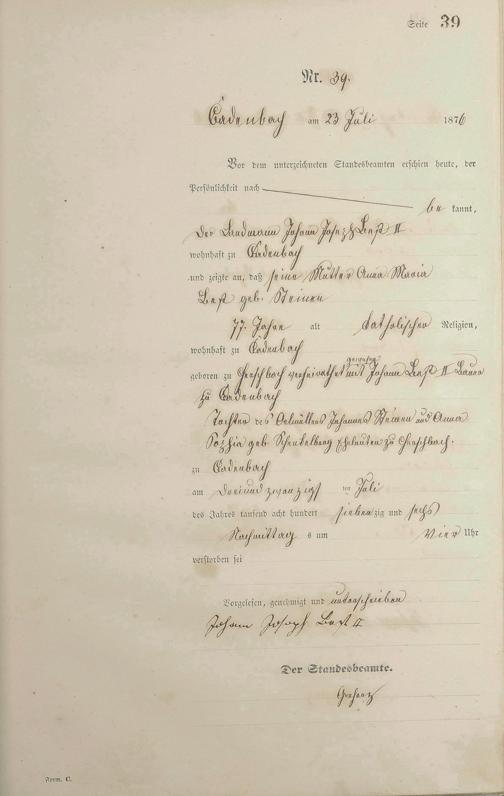 Seite 39
Nr. 39.
Cadenbach am 23 Juli 1876
Vor dem unterzeichneten Standesbeamten erschien heute, der
Persönlichkeit nach
be kannt,
der Landmann Johann Joseph Best II
wohnhaft zu Cadenbach
und zeigte an, daß seine Mutter Anna Maria
Best geb. Steinen
77 Jahre alt katholischer Religion,
wohnhaft zu Cadenbach
geboren zu verheirathet gewesen mit Johann Best II Bauer
zu Cadenbach
Tochter des Johannes Steinen und Anna
Sophia geb Eheleuten zu
zu Cadenbach
am dreiundzwanzigst en Juli
des Jahres tausend acht hundert siebenzig und sechs
Nachmittag s um vier Uhr
verstorben sei
Vorgelesen, genehmigt und unterschrieben
Johann Joseph Best II
Der Standesbeamte.
Form. C.